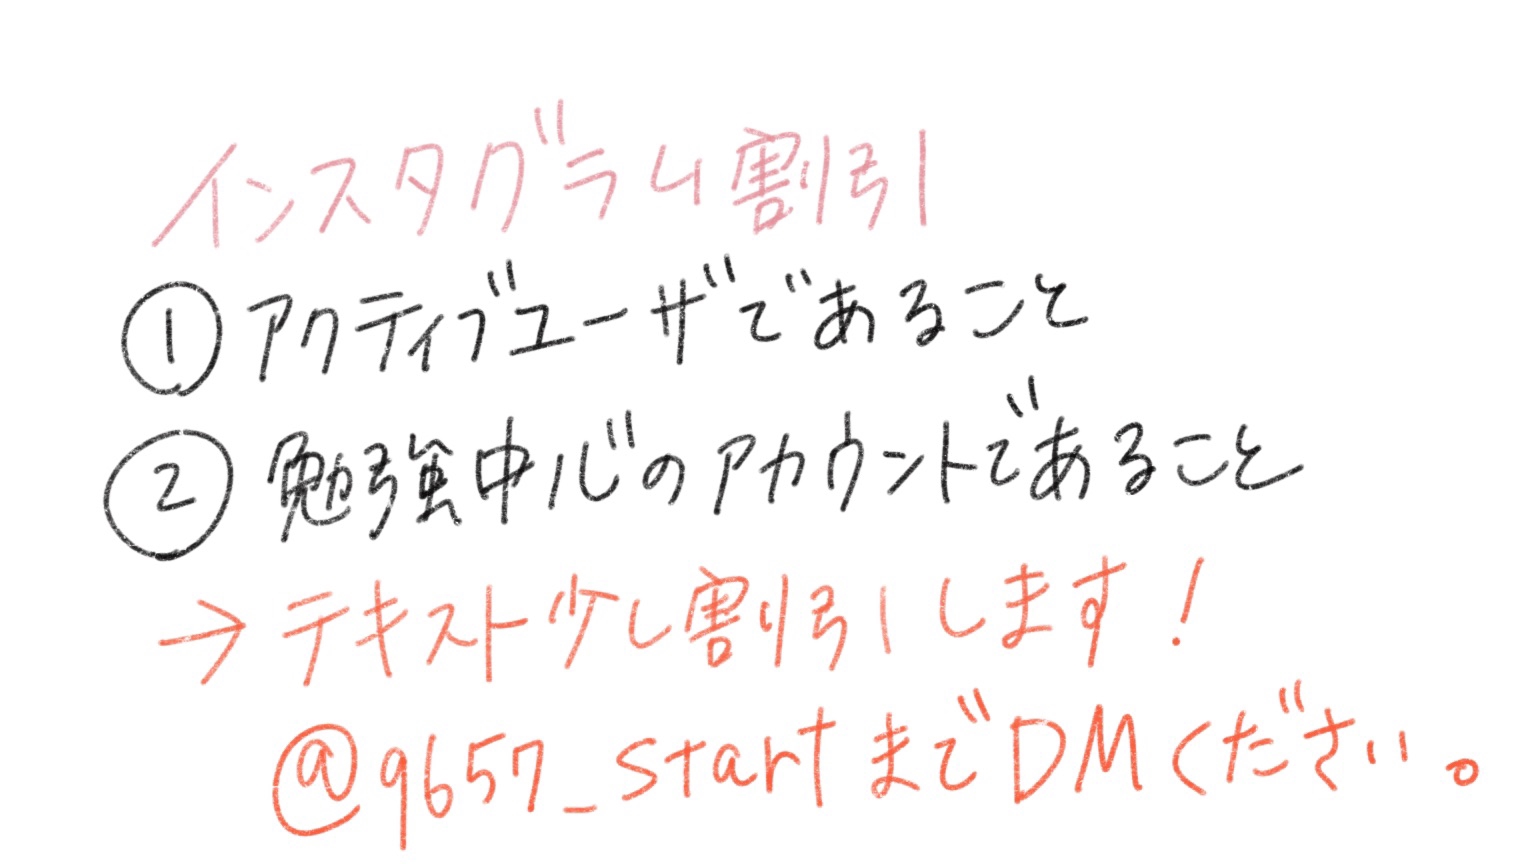 インスタグラム割引
① アクティブユーザであること
② 勉強中心のアカウントであること
→ テキスト少し割引します!
@9657_startまでDMください。